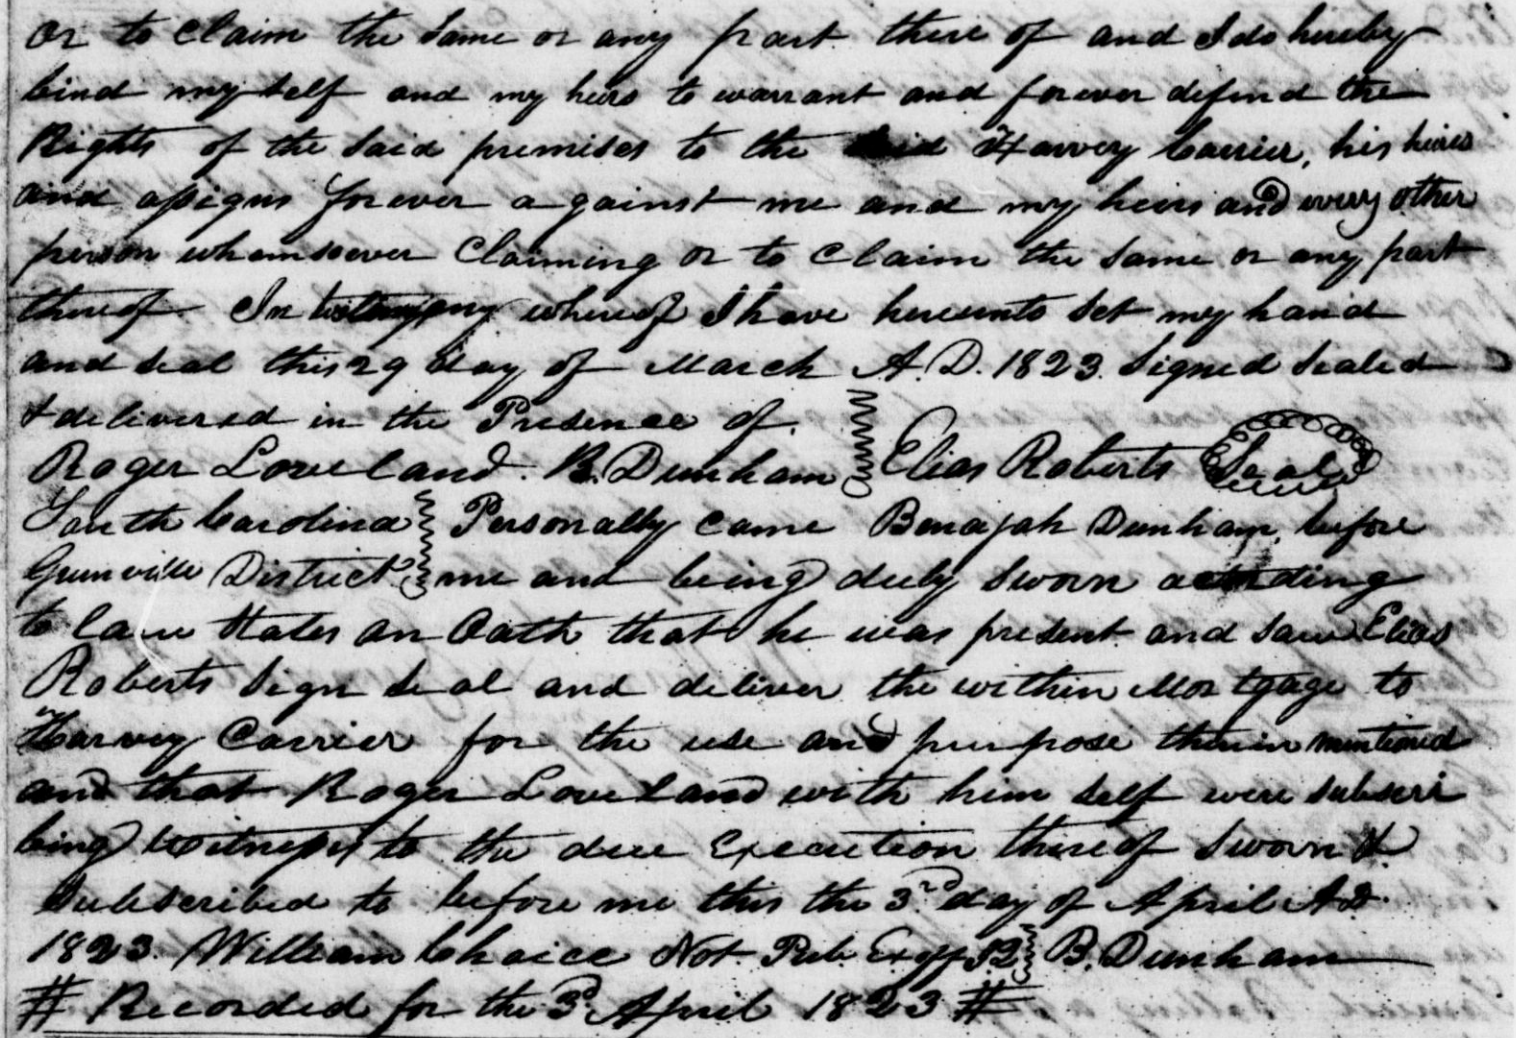 or to claim the same or any part there of and I do hereby
bind my self and my heirs to warrant and forever defend the
Rights of the said premises to the said Harvey Carrier, his heirs
and assigns forever against me and my heirs and every other
person whomsoever Claiming or to Claim the same or any part
thereof In testimony whereof I have hereunto set my hand
and seal this 29 day of March A.D. 1823. Signed Sealed
& delivered in the Presence of.
Roger Loveland. B. Dunham Elias Roberts Seal
South Carolina Personally came Benajah Dunham, before
Greenville District me and being duly sworn according
to law States on Oath that he was present and saw Elias
Roberts sign seal and deliver the within Mortgage to
Harvey Carrier for the use and purpose therein mentioned
and that Roger Loveland with him self were subscri
bing Witnesses to the due Execution thereof Sworn &
Subscribed to before me this the 3rd day of April AD.
1823. William Choice Not Pub. Exoff B. Dunham
# Recorded for the 3d. April 1823 #